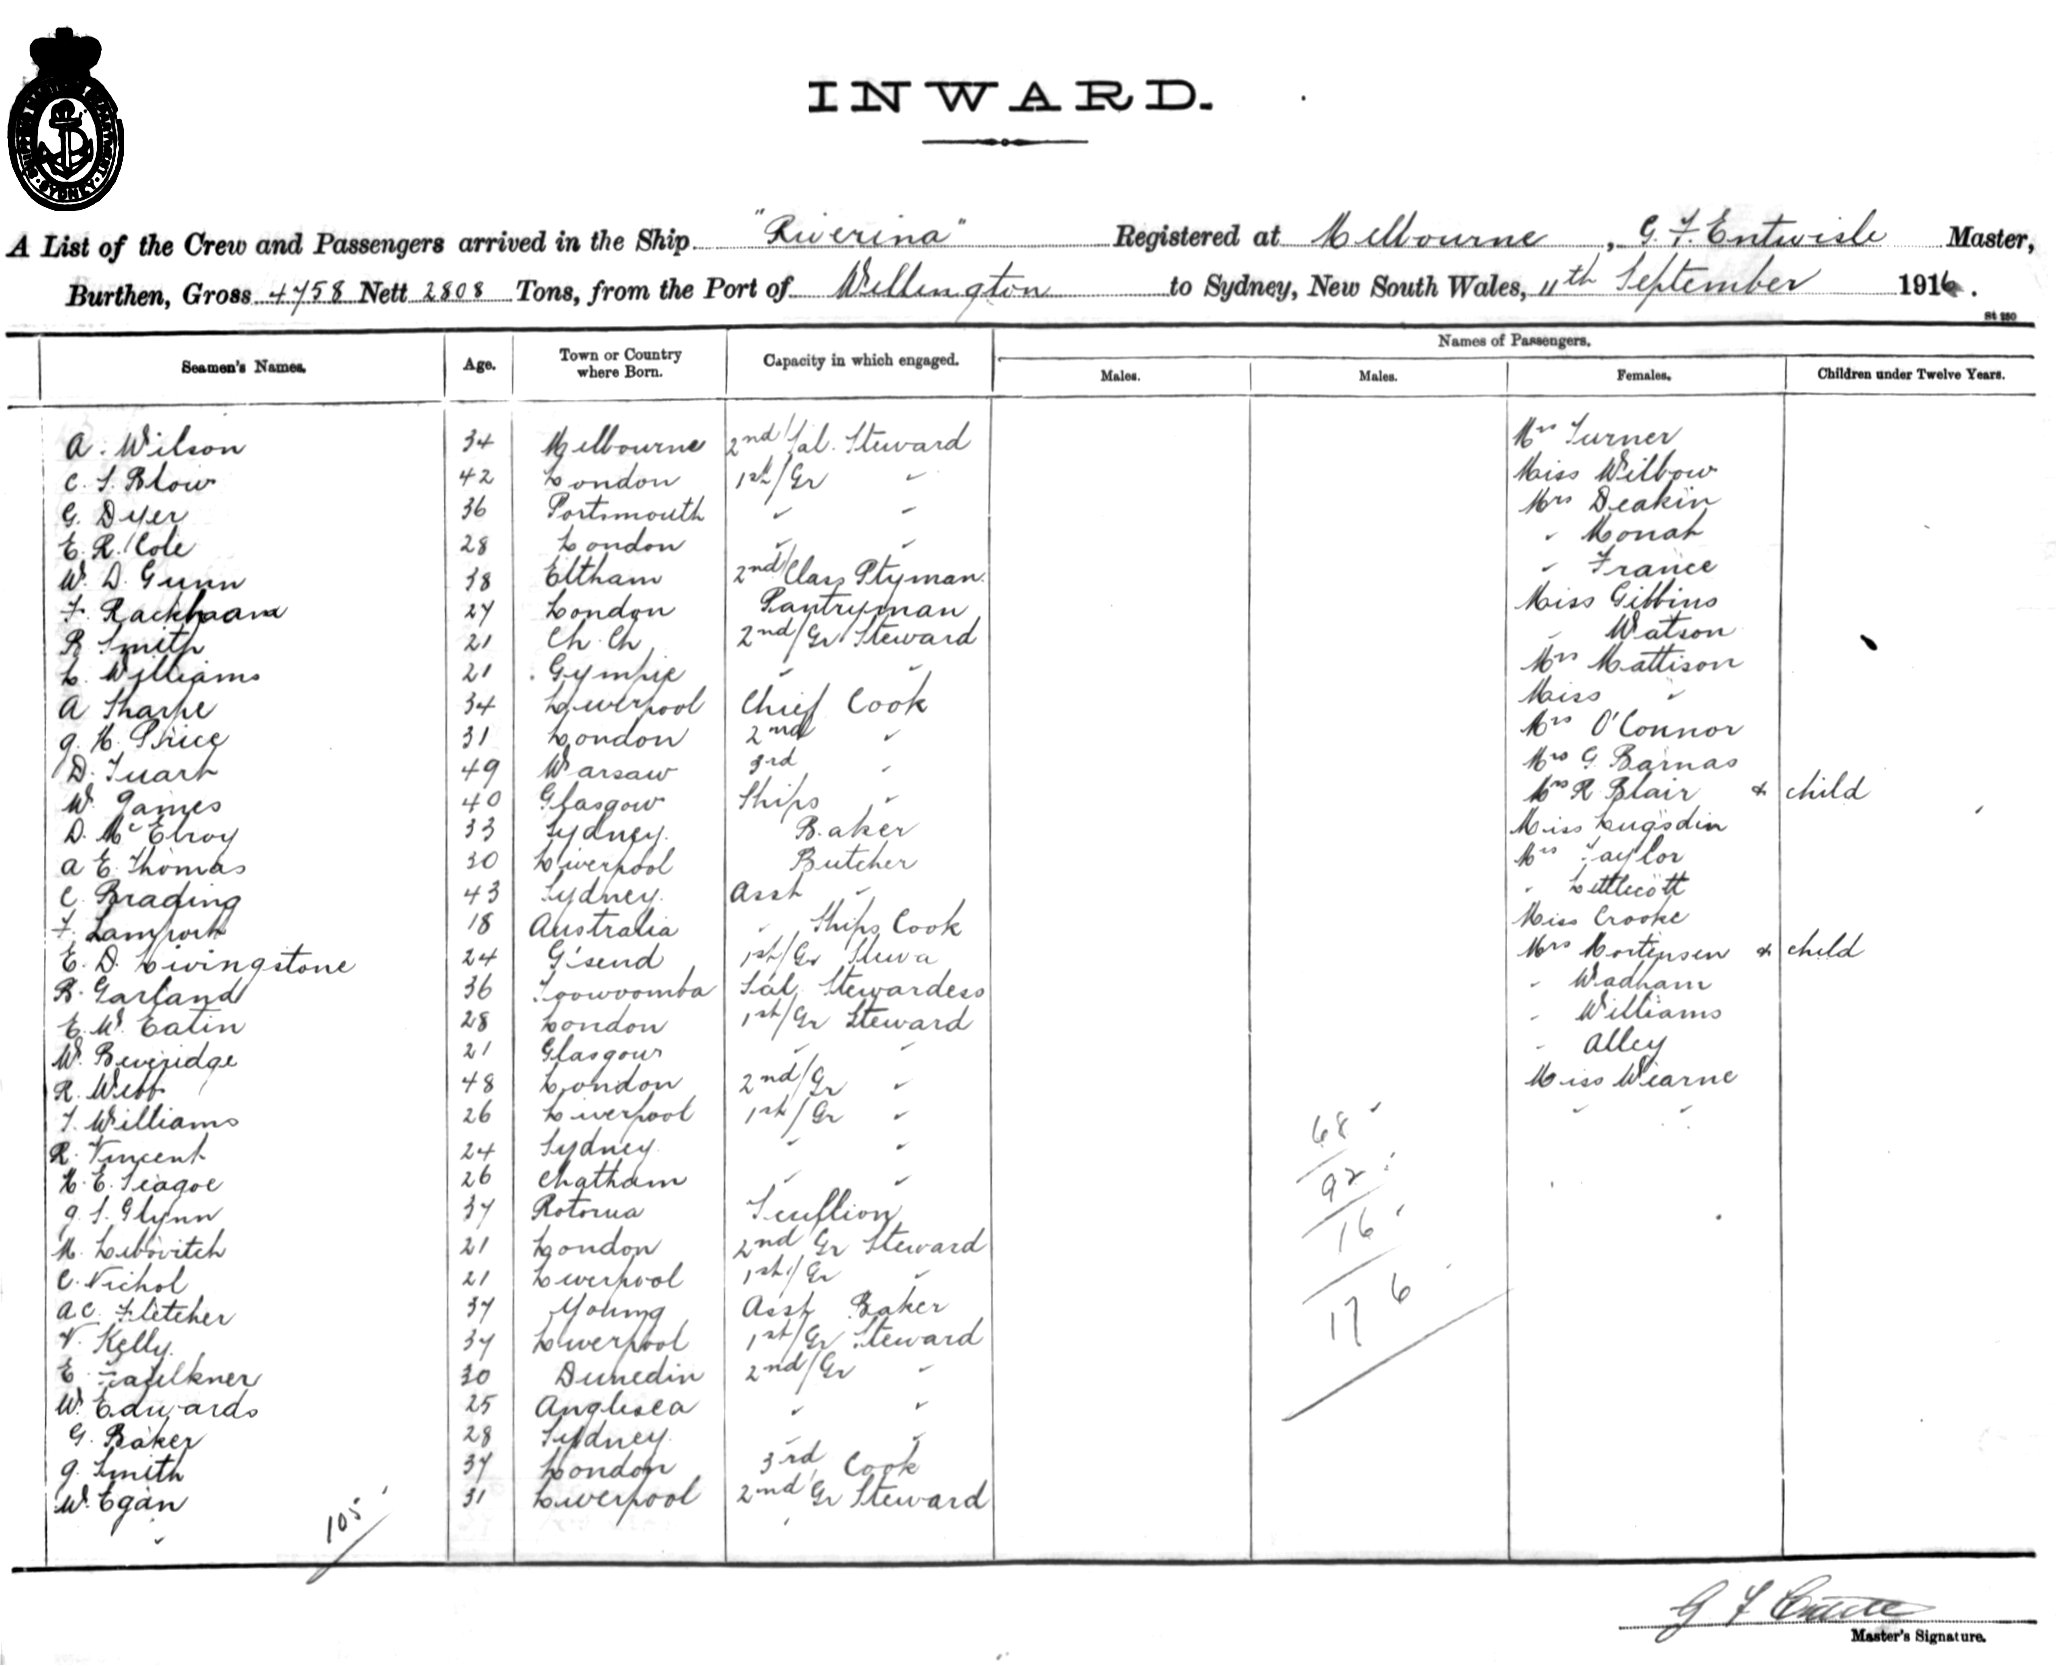 INWARD.
A List of the Crew and Passengers arrived in the Ship "Riverina" Registered at Melbourne, G. F. Entwisle Master,
Burthen, Gross 4758 Nett 2808 Tons, from the Port of Wellington to Sydney, New South Wales, 11th September 1916.
St 280
Names of Passengers.
Seamen's Names. Age. Town or Country where Born. Capacity in which engaged. Males. Males. Females. Children under Twelve Years.
A. Wilson 34 Melbourne 2nd/Sal. Steward Mrs Turner
C. S. Blow 42 London 1st/Gr " Miss Wilbow
G. Dyer 36 Portsmouth " " Mrs Deakin
E. R. Cole 28 London " " " Monah
W. D. Gunn 38 Eltham 2nd/Class Ptyman. " France
F. Rackhaam 27 London Pantryman Miss Gibbins
R Smith 21 Ch. Ch. 2nd/Gr Steward " Watson
L. Williams 21 Gympie " " Mrs Mattison
A Sharpe 34 Liverpool Chief Cook Miss "
J. H. Price 31 London 2nd " Mrs O'Connor
D. Tuart 49 Warsaw 3rd " Mrs G Barnas
W. James 40 Glasgow Ships " Mrs R Blair & child
D. McElroy 33 Sydney. Baker Miss Lugsdin
A E. Thomas 30 Liverpool Butcher Mrs Taylor
C. Brading 43 Sydney. Asst " " Lettlecott
F. Lamport 18 Australia " Ships Cook Miss Crooke
E. D. Livingstone 24 G'send 1st/Gr Stewa Mrs Mortensen & child
B. Garland 36 Toowoomba Sal. Stewardess " Wadham
E. W. Eatin 28 London 1st/Gr Steward " Williams
W. Beveridge 21 Glasgow " " " Alley
R. Webb 48 London 2nd/Gr " Miss Wearne
T. Williams 26 Liverpool 1st/Gr " " "
R. Vincent 24 Sydney " "
H. E. Seagoe 26 Chatham " "
J. S. Glynn 37 Rotorua Scullion
M. Lebovitch 21 London 2nd Gr Steward
C. Nichol 21 Liverpool 1st/Gr "
A. C. Fletcher 37 Young Asst Baker
V. Kelly. 37 Liverpool 1st/Gr Steward
E. Faulkner 30 Dunedin 2nd/Gr "
W. Edwards 25 Anglesea " "
G. Baker 28 Sydney. " "
J. Smith 37 London 3rd Cook
W. Egan 31 Liverpool 2nd Gr Steward
68
92
16
176
105
Master's Signature.